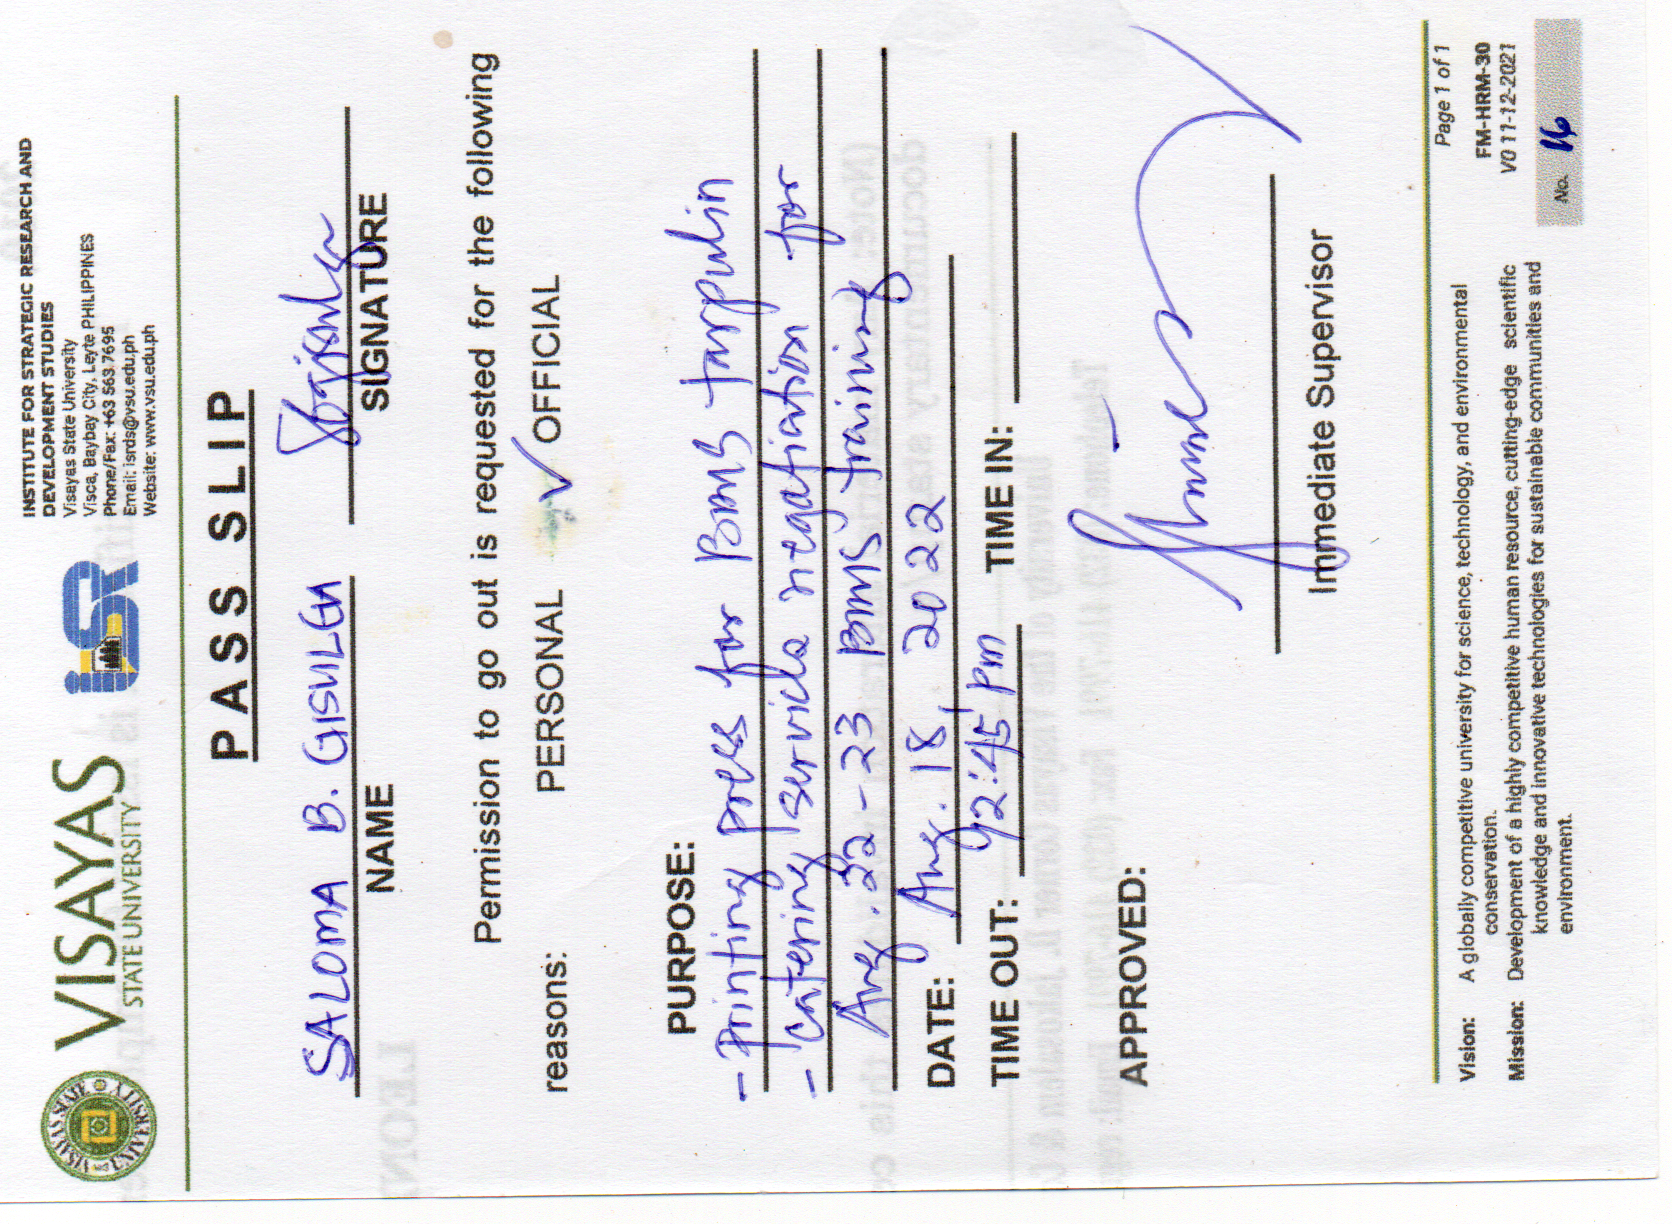 VISAYAS
STATE UNIVERSITY
iSR
INSTITUTE FOR STRATEGIC RESEARCH AND
DEVELOPMENT STUDIES
Visayas State University
Visca, Baybay City, Leyte PHILIPPINES
Phone/Fax: +63 563 7695
Email: isrds@vsu.edu.ph
Website: www.vsu.edu.ph
PASS SLIP
SALOMA B. GISULGA
NAME
SIGNATURE
Permission to go out is requested for the following
reasons: PERSONAL ✓ OFFICIAL
PURPOSE:
- Printing press for BMS tarpulin
- catering service negatiation for
Aug. 22-23 BMS training
DATE: Aug. 18, 2022
TIME OUT: 2:45 pm TIME IN:
APPROVED:
Immediate Supervisor
Vision: A globally competitive university for science, technology, and environmental
conservation.
Mission: Development of a highly competitive human resource, cutting-edge scientific
knowledge and innovative technologies for sustainable communities and
environment.
Page 1 of 1
FM-HRM-30
V0 11-12-2021
No. 16